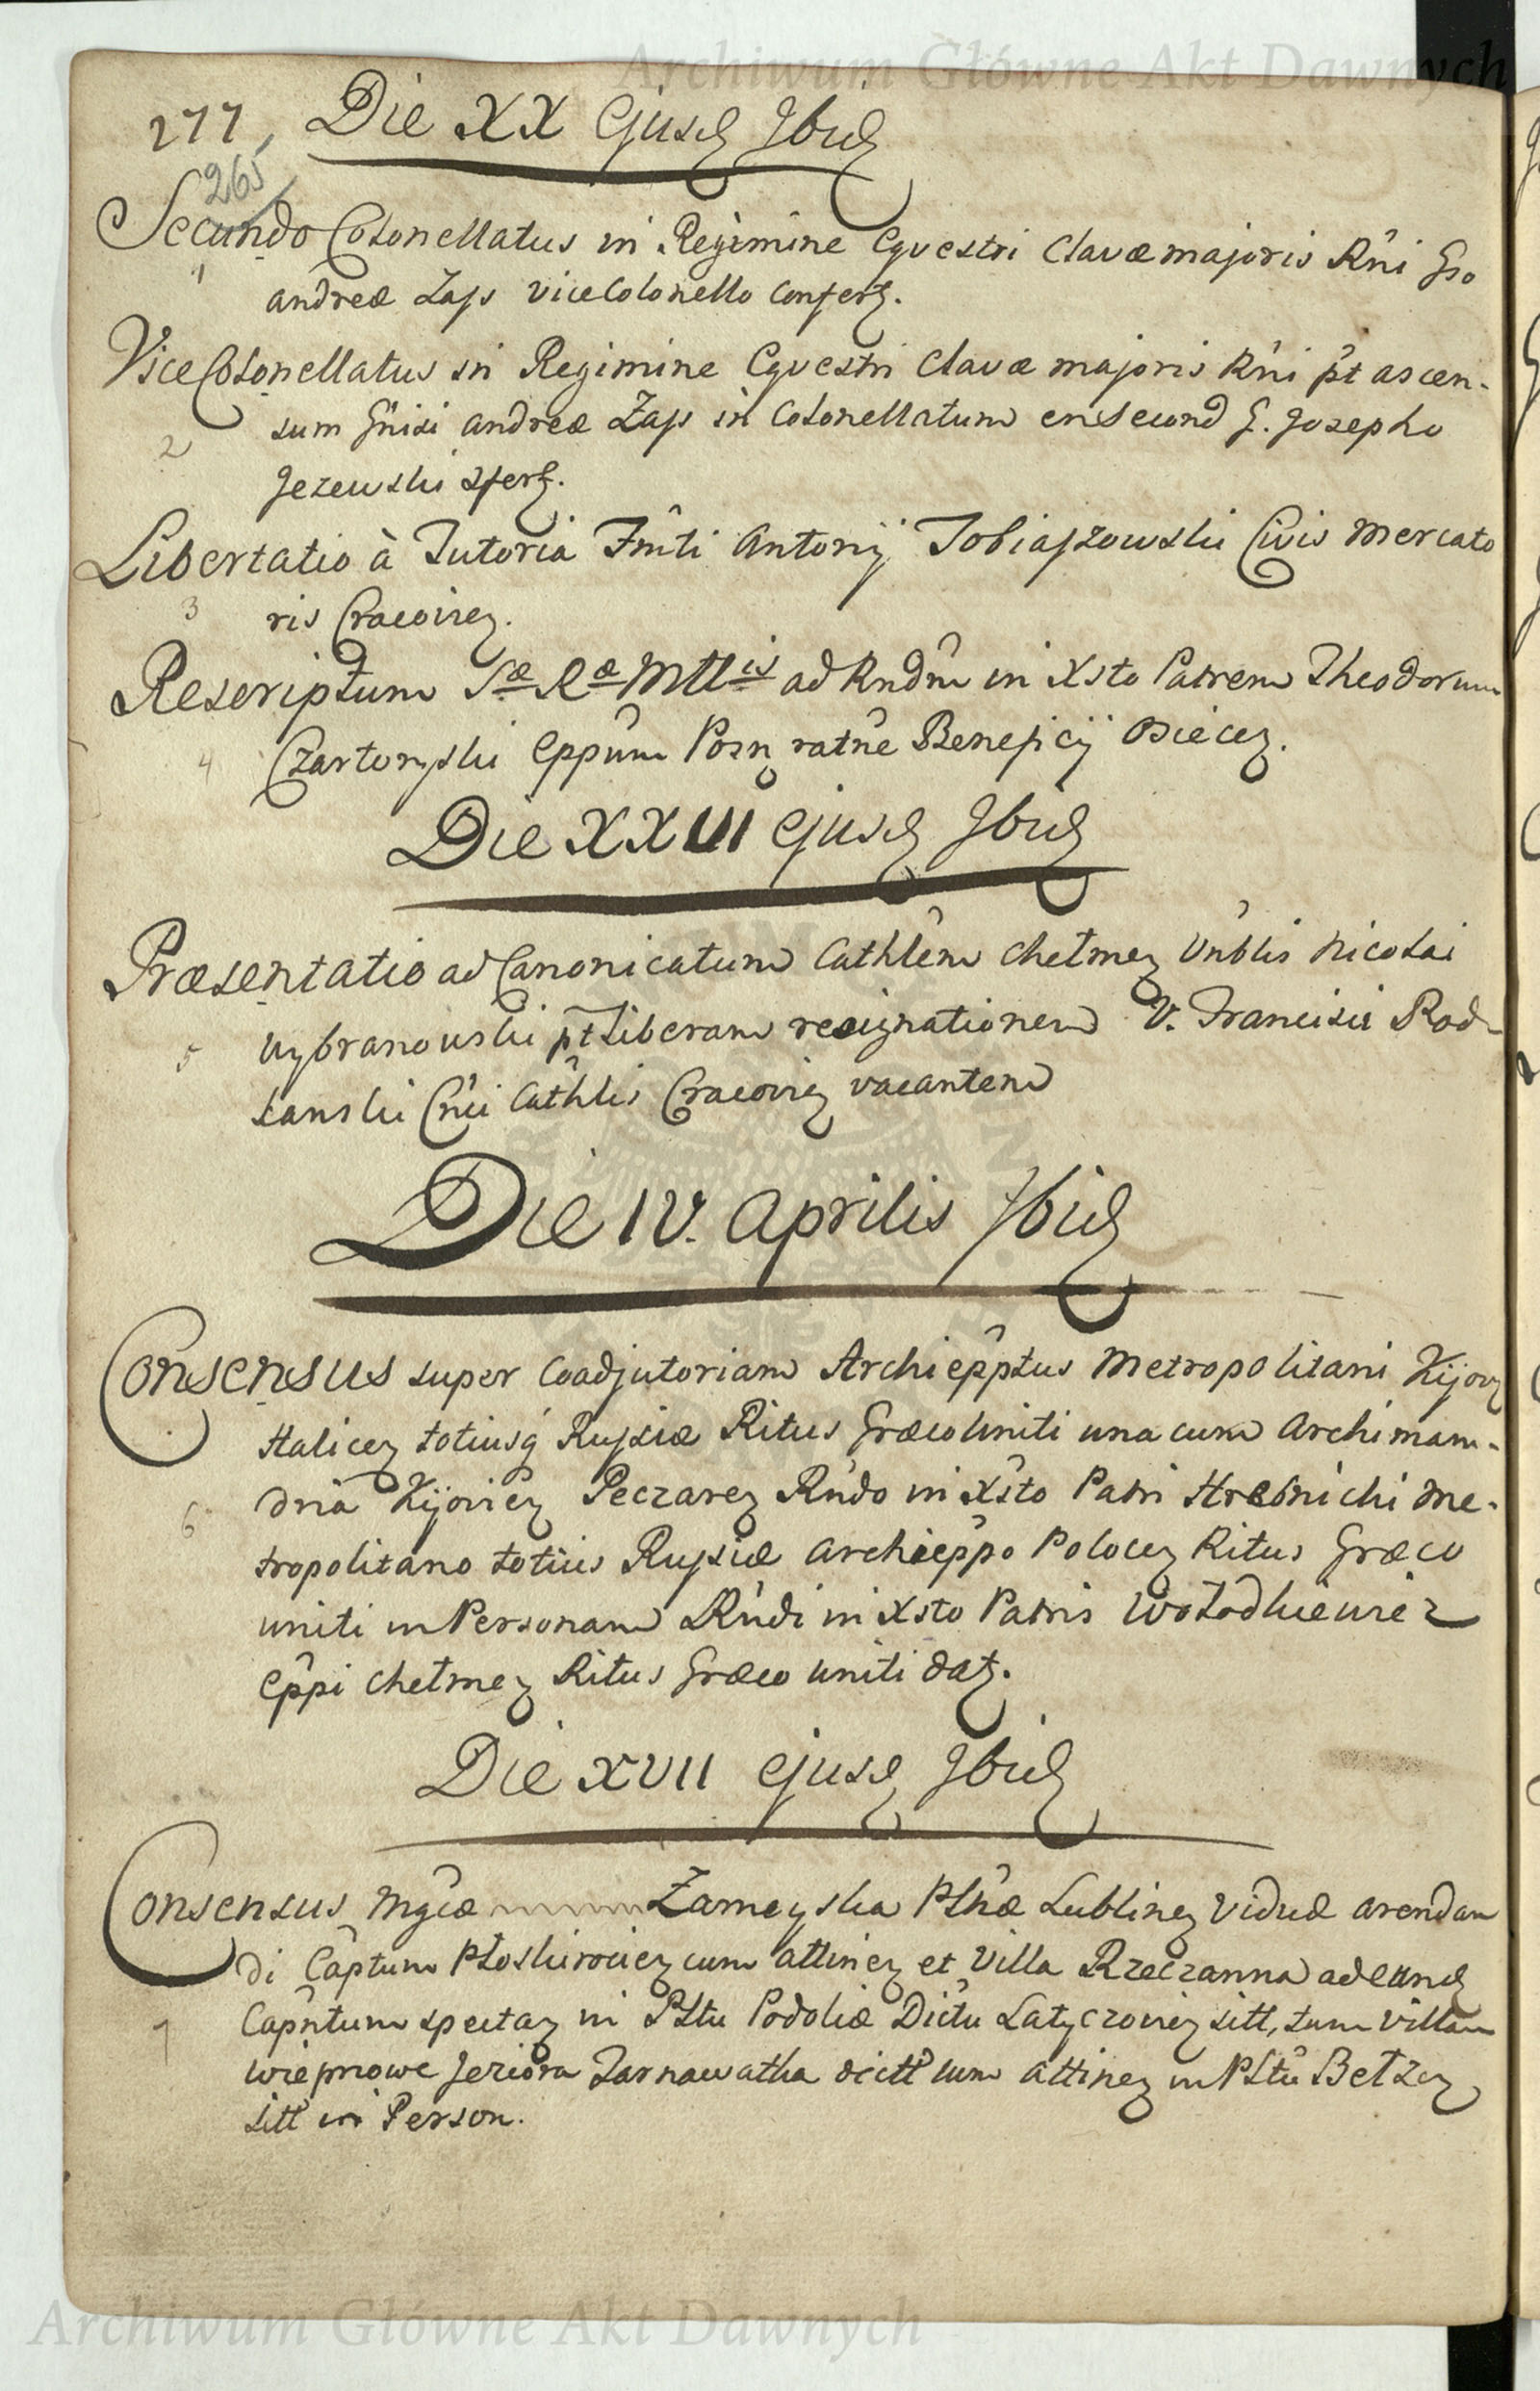 Archiwum Główne Akt Dawnych
277 Die XX Ejusd Ibid
265
Secundo Colonellatus in Regimine Equestri Clavæ majoris Rni Gso
1 Andreæ Zass viceColonello Confert.
ViceColonellatus in Regimine Equestri Clavæ majoris Rni pt ascen-
2 sum Gnisi Andreæ Zass in Colonellatum en Second G. Josepho
Jezewski Sfert.
Libertatio à Tutoria Fmti Antonij Tobiaszowski Civis Mercato
3 ris Cracovien.
Rescriptum Sæ Ræ Mttis ad Rndm in Xsto Patrem Theodorum
4 Czartoryski Eppum Posn ratne Beneficij Osiecen.
Die XXVI ejusd Ibid
Præsentatio ad Canonicatum Cathlem Chelmen Vnblis Nicolai
5 Wybranowski pt liberam resignationem V. Francisci Rod-
kanski Cnci Cathlis Cracovien vacantem
Die IV. Aprilis Ibid
Consensus super Coadjutoriam Archiepptus Metropolitani Kijov
Halicen totiusq Russiæ Ritus Græco Uniti una cum Archiman-
6 dria Kijovien Peczaren Rndo in Xsto Patri Hrebnicki Me-
tropolitano totius Russiæ Archieppo Polocen Ritus Græco
uniti in Personam Rndi in Xsto Patris Wolodkiewicz
Eppi Chelmen Ritus Græco Uniti dat.
Die XVII ejusd Ibid
Consensus Mgcæ Zameyska Plnæ Lublinen Viduæ arendan
di Captum Ploskirovien cum attinen et Villa Rzeczanna ad eund
7 Capntum spectan in Pltu Podoliæ Dictu Latyczovien sitt, tum Villam
Wieprzowe Jeziora Tarnawatka dictt cum attinen in Pltu Belzen
sitt in Person.
Archiwum Główne Akt Dawnych